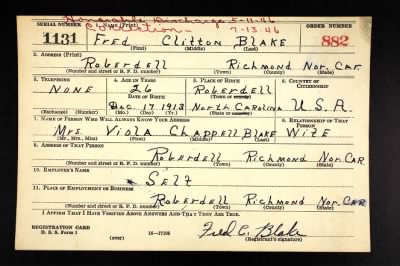 Honorable Discharge 5-11-46
SERIAL NUMBER 1. NAME (Print) Correction - 7-13-46 ORDER NUMBER
1131 Fred Clifton BLAKE 882
(First) (Middle) (Last)
2. ADDRESS (Print)
Roberdell Richmond Nor. Car.
(Number and street or R. F. D. number) (Town) (County) (State)
3. TELEPHONE 4. AGE IN YEARS 5. PLACE OF BIRTH 6. COUNTRY OF CITIZENSHIP
NONE 26 Roberdell
DATE OF BIRTH (Town or county)
Dec 17 1913 North Carolina U.S.A.
(Exchange) (Number) (Mo.) (Day) (Yr.) (State or country)
7. NAME OF PERSON WHO WILL ALWAYS KNOW YOUR ADDRESS 8. RELATIONSHIP OF THAT PERSON
Mrs. Viola Chappell BLAKE Wife
(Mr., Mrs., Miss) (First) (Middle) (Last)
9. ADDRESS OF THAT PERSON
Roberdell Richmond Nor. Car
(Number and street or R. F. D. number) (Town) (County) (State)
10. EMPLOYER'S NAME
Self
11. PLACE OF EMPLOYMENT OR BUSINESS
Roberdell Richmond Nor. Car
(Number and street or R. F. D. number) (Town) (County) (State)
I AFFIRM THAT I HAVE VERIFIED ABOVE ANSWERS AND THAT THEY ARE TRUE.
REGISTRATION CARD
D. S. S. Form 1 16-17105 Fred C. Blake
(Registrant's signature)